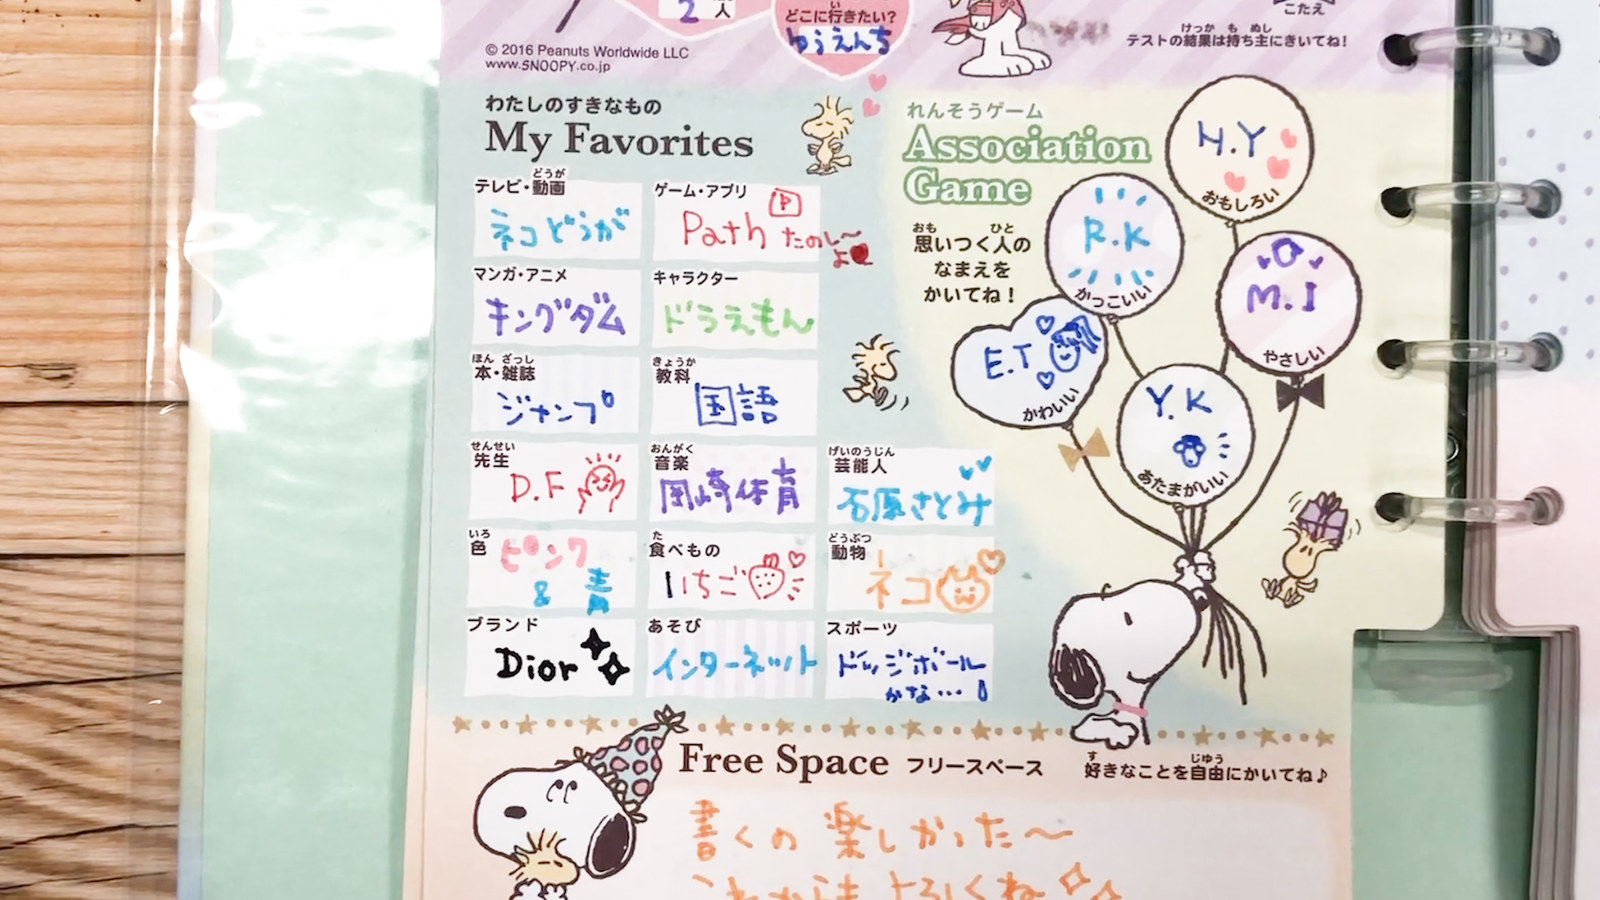 2人
どこに行きたい?
ゆうえんち
こたえ
テストの結果は持ち主にきいてね!
© 2016 Peanuts Worldwide LLC
www.SNOOPY.co.jp
わたしのすきなもの
My Favorites
テレビ・動画
ネコどうが
ゲーム・アプリ
Path P たのし〜よ
マンガ・アニメ
キングダム
キャラクター
ドラえもん
本・雑誌
ジャンプ
教科
国語
先生
D.F
音楽
岡崎体育
芸能人
石原さとみ
色
ピンク
& 青
食べもの
いちご
動物
ネコ
ブランド
Dior
あそび
インターネット
スポーツ
ドッジボール
かな…!
れんそうゲーム
Association
Game
思いつく人の
なまえを
かいてね!
H.Y
おもしろい
R.K
かっこいい
M.I
やさしい
E.T
かわいい
Y.K
あたまがいい
Free Space フリースペース
好きなことを自由にかいてね♪
書くの 楽しかった〜
これからもよろしくね